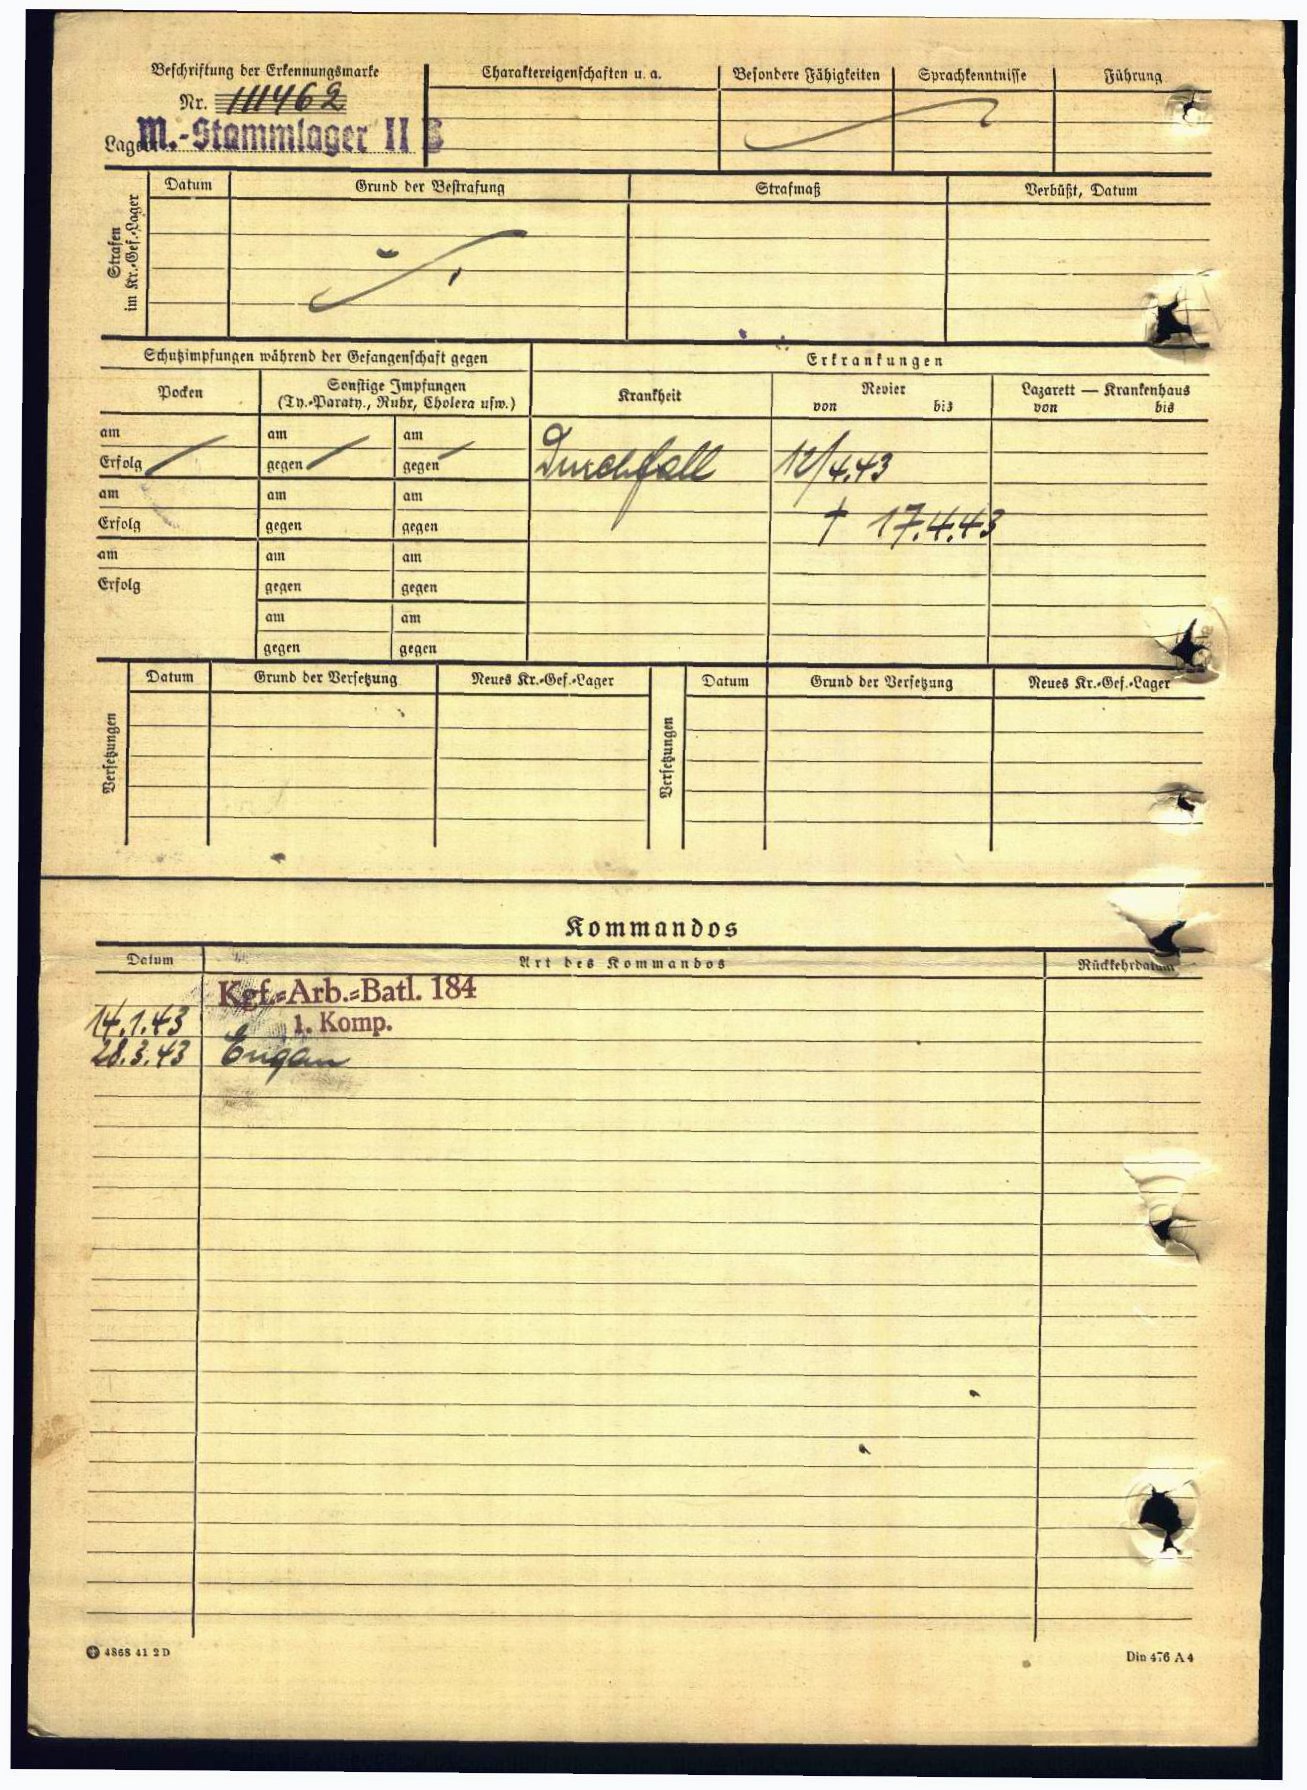 Beschriftung der Erkennungsmarke
Nr. 111462
Lager: M.-Stammlager II B
Charaktereigenschaften u. a.
Besondere Fähigkeiten
Sprachkenntnisse
Führung
Strafen im Kr.-Gef.-Lager
Datum
Grund der Bestrafung
Strafmaß
Verbüßt, Datum
Schutzimpfungen während der Gefangenschaft gegen
Erkrankungen
Pocken
Sonstige Impfungen
(Ty.-Paraty., Ruhr, Cholera usw.)
Krankheit
Revier
von bis
Lazarett — Krankenhaus
von bis
am am am
Erfolg gegen gegen
Durchfall 12/4.43
am am am
Erfolg gegen gegen
† 17.4.43
am am am
Erfolg gegen gegen
am am
gegen gegen
Versetzungen
Datum
Grund der Versetzung
Neues Kr.-Gef.-Lager
Versetzungen
Datum
Grund der Versetzung
Neues Kr.-Gef.-Lager
Kommandos
Datum
Art des Kommandos
Rückkehrdatum
Kgf.=Arb.=Batl. 184
14.1.43 1. Komp.
28.3.43 Engan
4868 41 2 D
Din 476 A 4